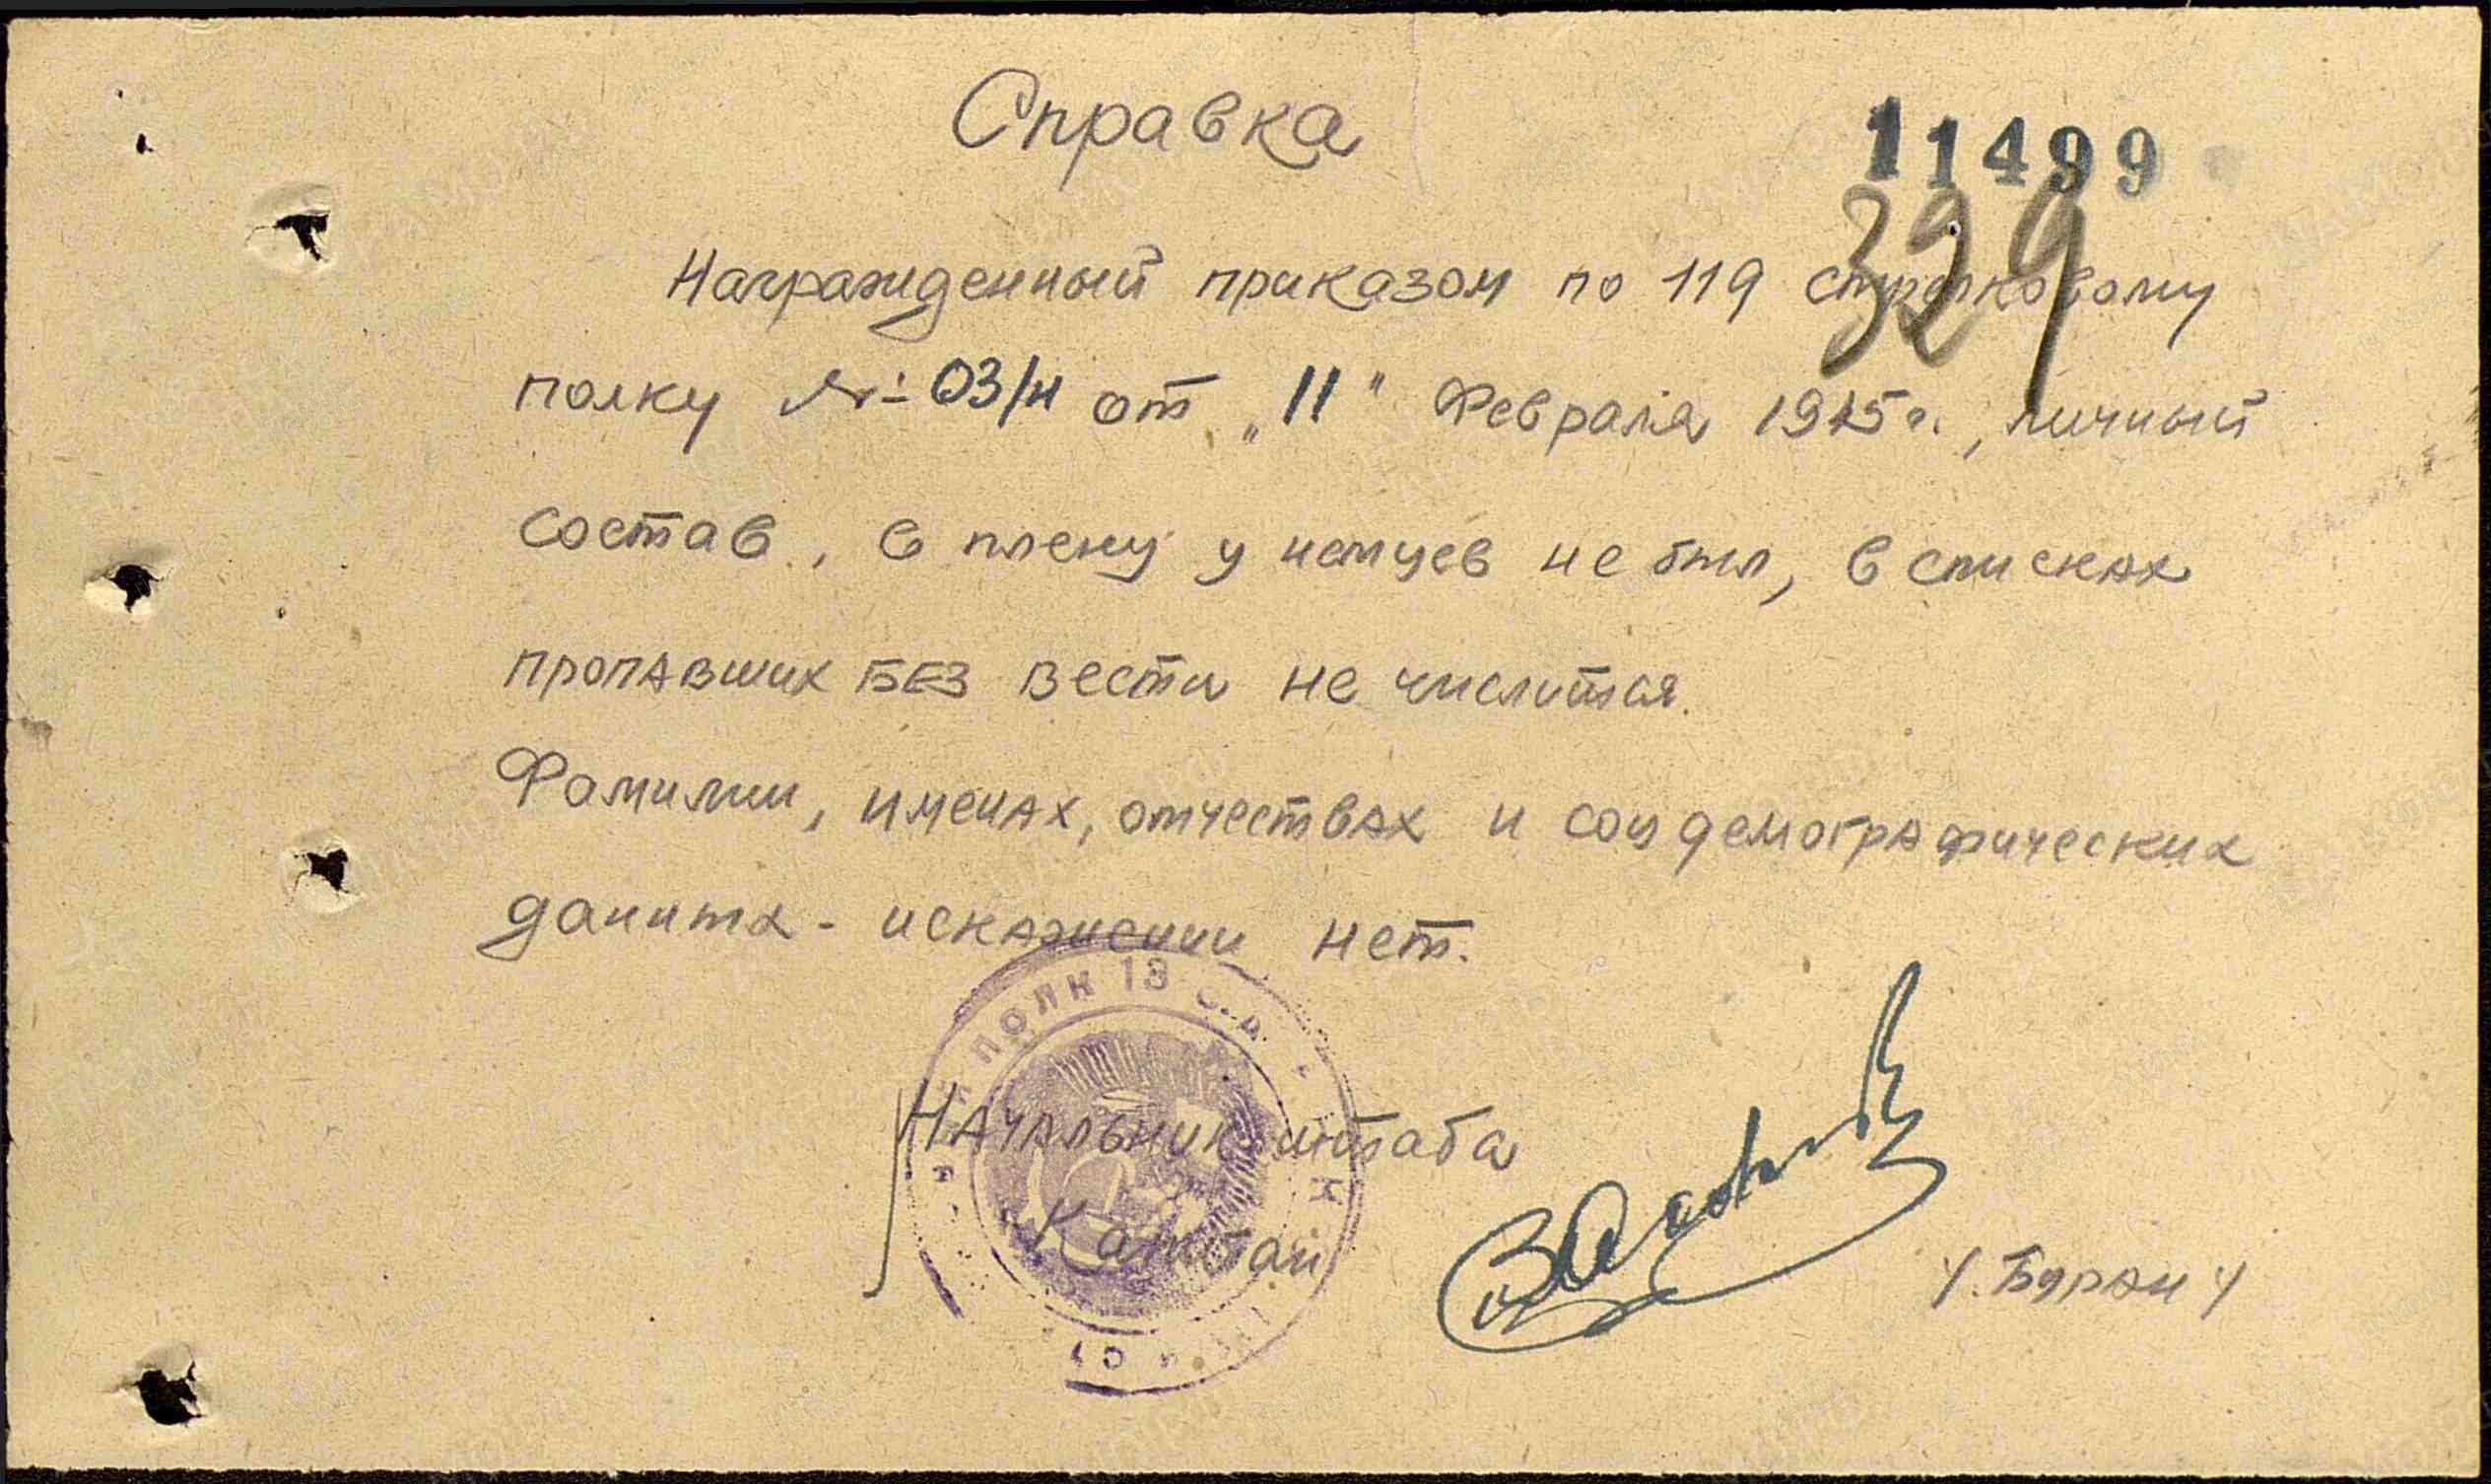 Справка
11499
329
Награжденный приказом по 119 стрелковому
полку № 03/н от „11" Февраля 1945г., личный
состав, в плену у немцев не был, в списках
пропавших БЕЗ вести не числится.
Фамилии, именах, отчествах и соц демографических
данных - искажении нет.
ПОЛК 13 С.Д.
Начальник штаба
Капитан